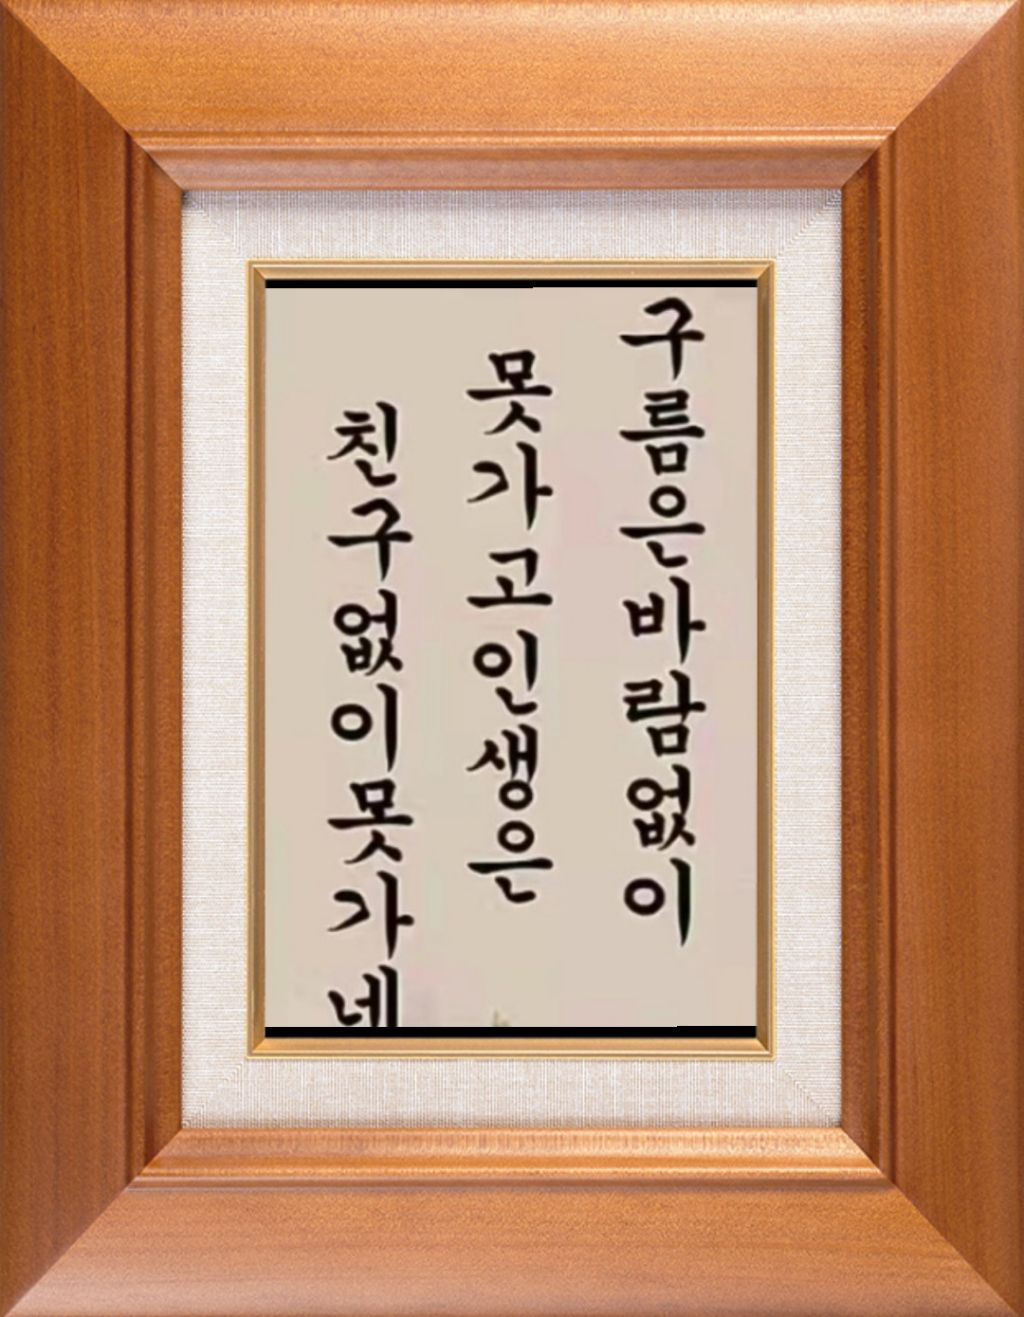 구름은바람없이
못가고인생은
친구없이못가네